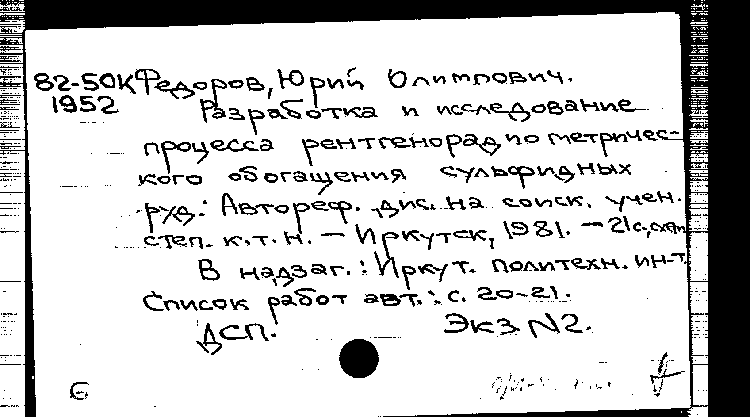 82-50К Федоров, Юрий Олимпович.
1952 Разработка и исследование
процесса рентгенорадиометричес-
кого обогащения сульфидных
руд.: Автореф. дис. на соиск. учен.
степ. к.т.н. — Иркутск, 1981. — 21с, схем
В надзаг.: Иркут. политехн. ин-т.
Список работ авт.: с. 20-21.
ДСП. Экз N2.
б